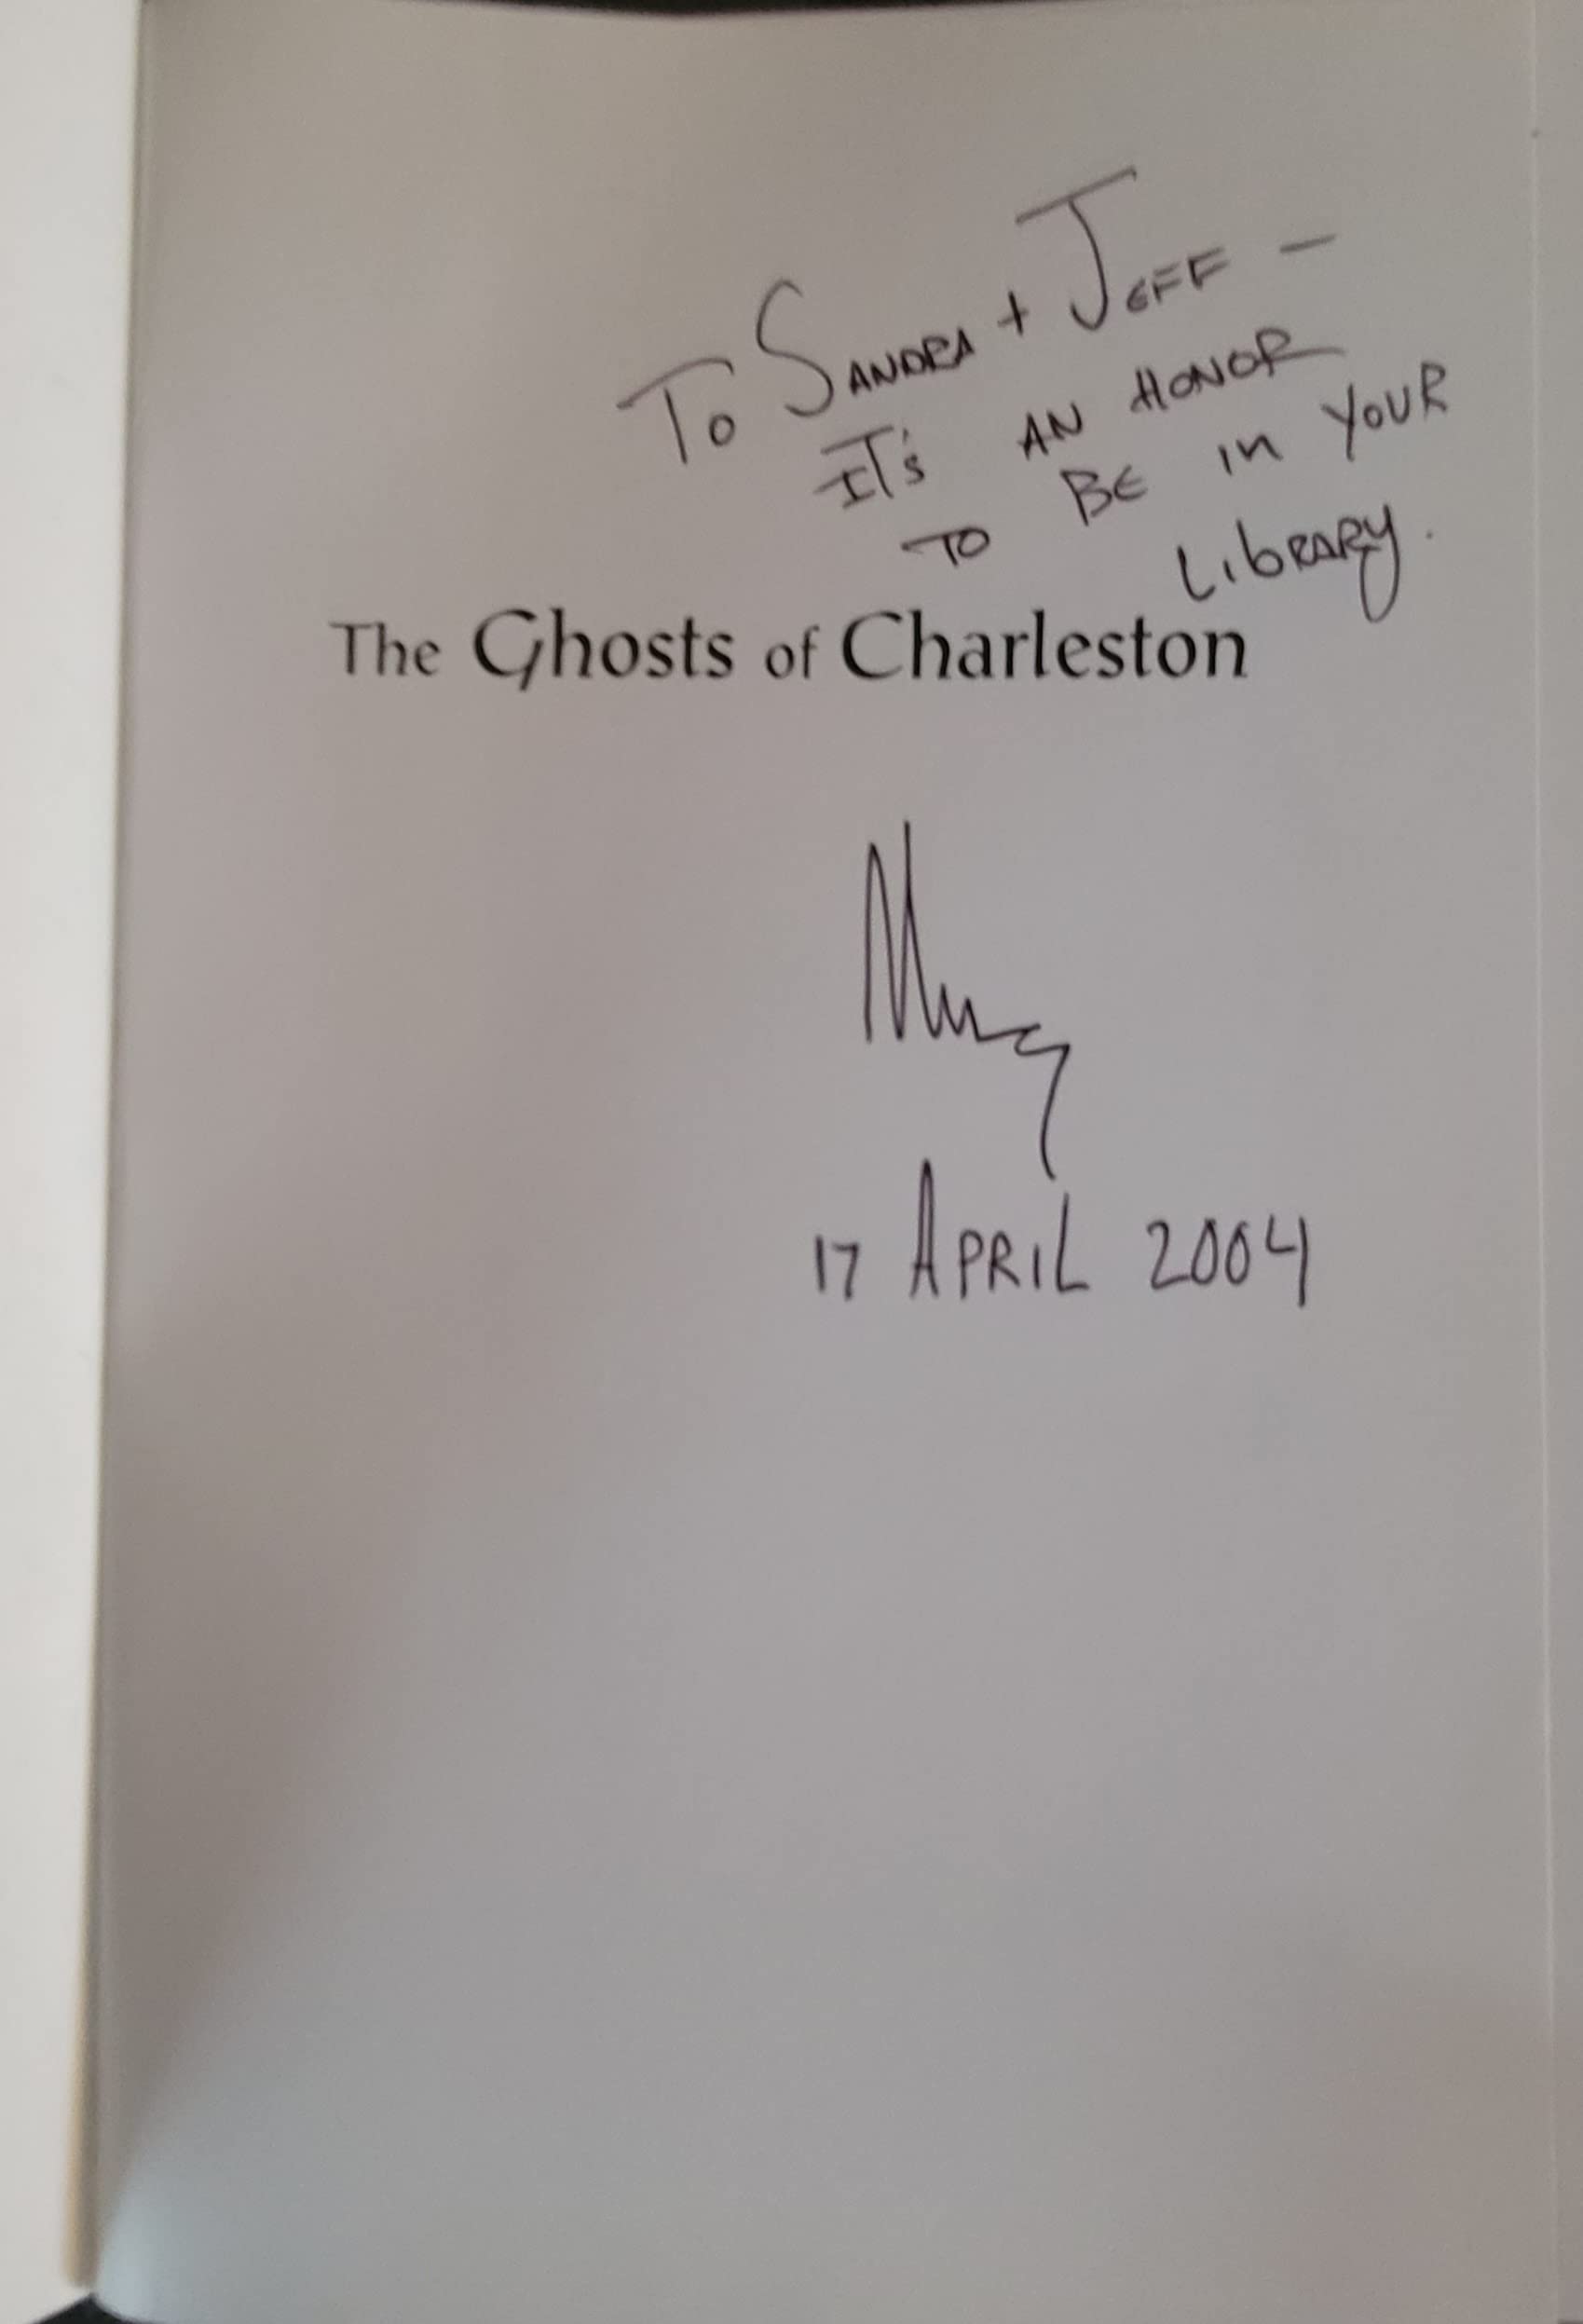 To SANDRA + JEFF —
IT'S AN HONOR
TO BE IN YOUR
LIBRARY.
The Ghosts of Charleston
17 APRIL 2004